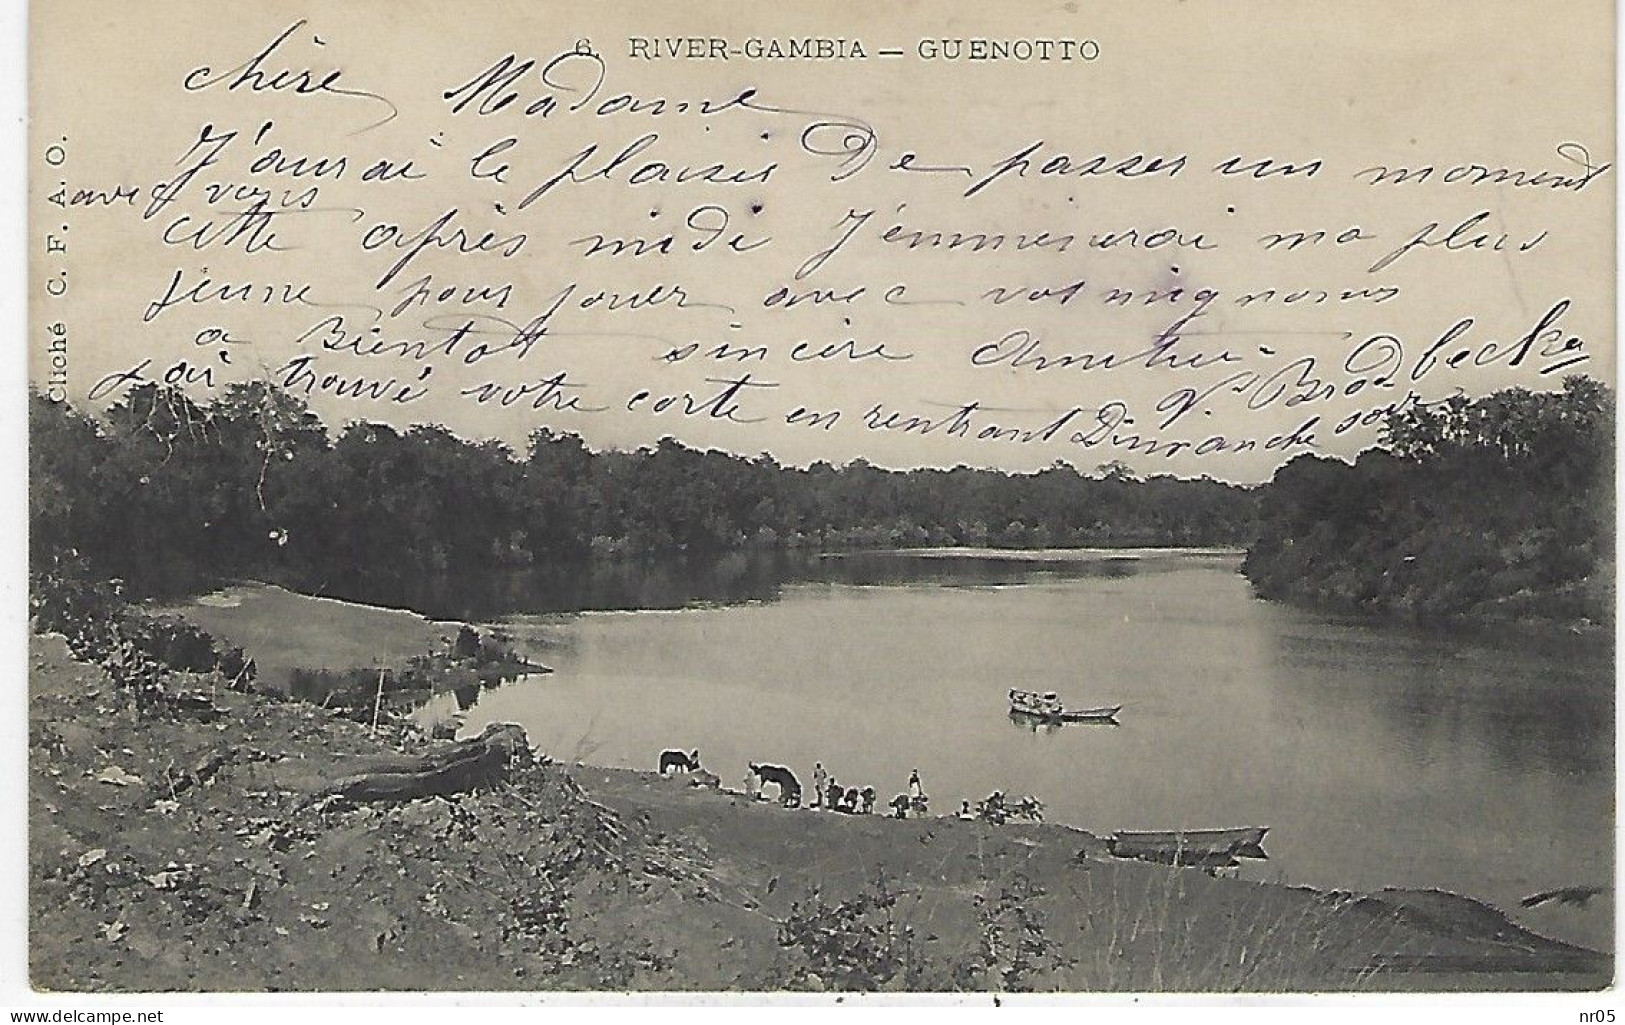 6. RIVER-GAMBIA — GUENOTTO
Cliché C. F. A. O.
chère Madame
J'aurai le plaisir De passer un moment
avec vous
cette après midi J'emmenerai ma plus
jeune pour jouer avec vos mignonnes
a Bientot sincère Amitié
V. Brodbecker
J'ai trouvé votre carte en rentrant Dimanche soir
delcampe.net
nr05